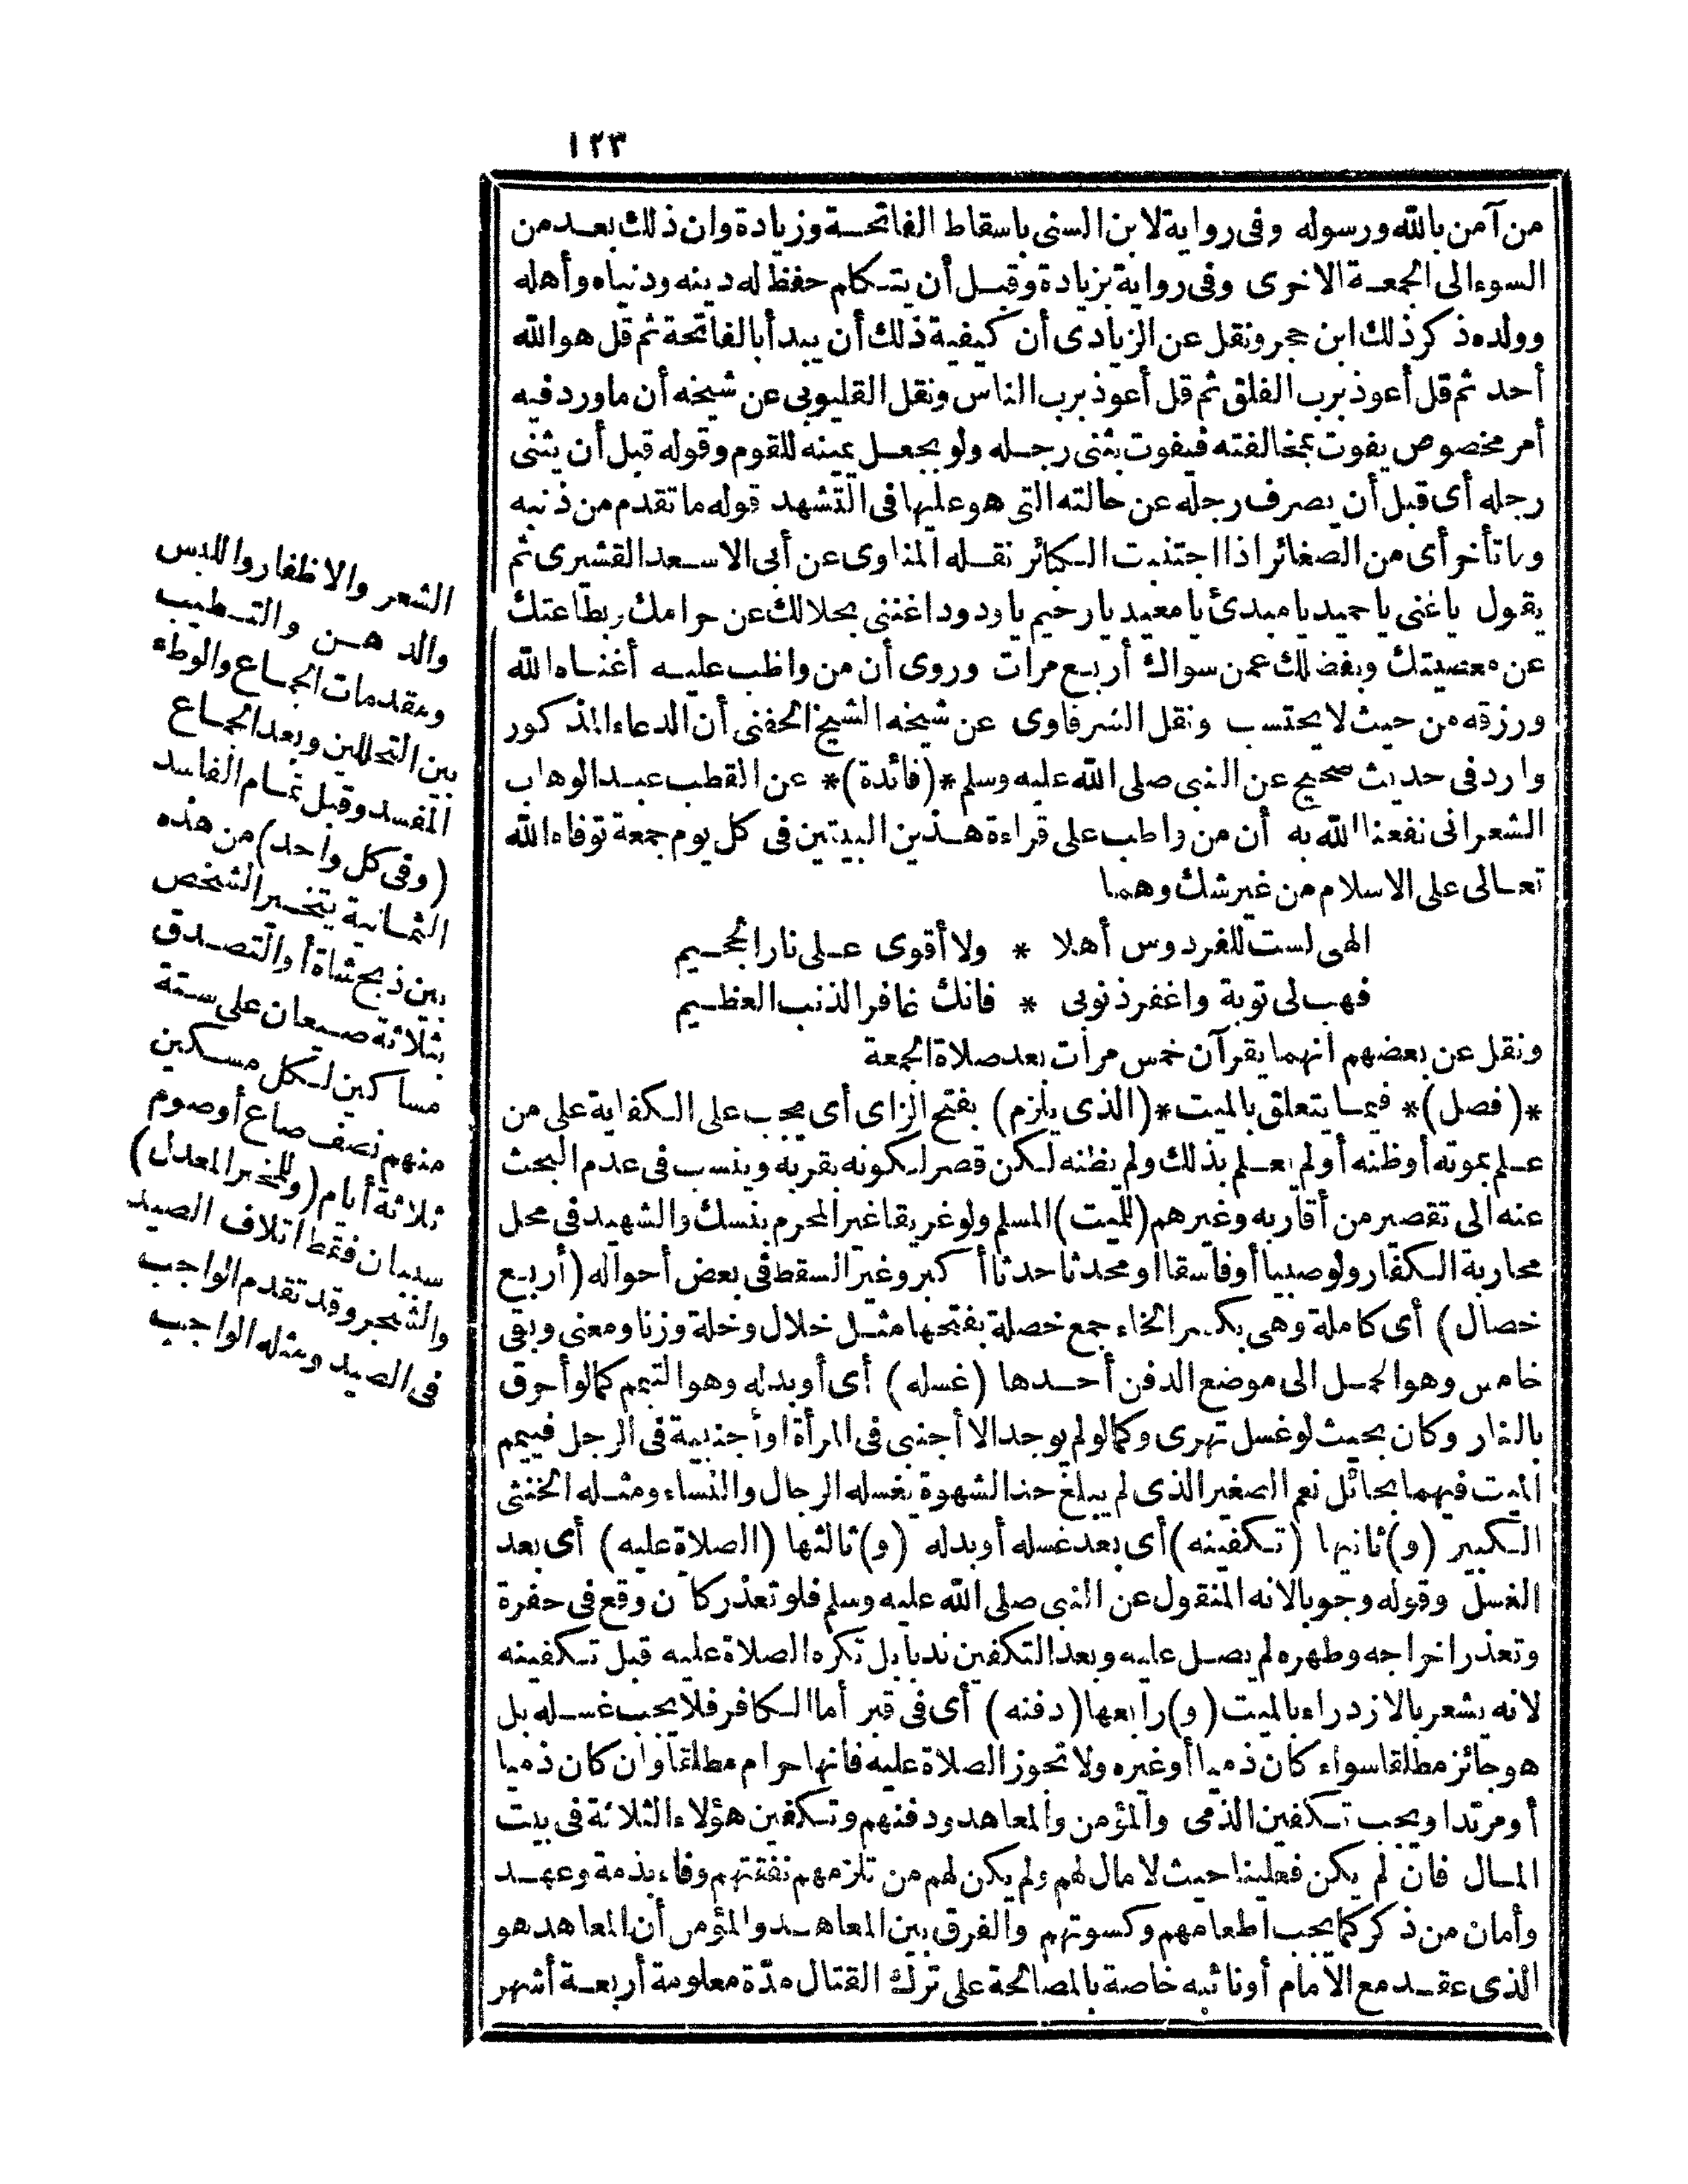 ١٢٣
من آمن بالله ورسوله وفى رواية لابن السنى باسقاط الفاتحة وزيادة وان ذلك بعد من
السوء الى الجمعة الاخرى وفى رواية بزيادة وقبل أن يتكلم حفظ له دينه ودنياه وأهله
وولده ذكر ذلك ابن حجر ونقل عن الزيادى أن كيفية ذلك أن يبدأ بالفاتحة ثم قل هو الله
أحد ثم قل أعوذ برب الفلق ثم قل أعوذ برب الناس ونقل القليوبى عن شيخه أن ما ورد فيه
أمر مخصوص يفوت بمخالفته فيفوت بثنى رجله ولو بجعل يمينه للقوم وقوله قبل أن يثنى
رجله أى قبل أن يصرف رجله عن حالته التى هو عليها فى التشهد قوله ما تقدم من ذنبه
وما تأخر أى من الصغائر اذا اجتنبت الكبائر نقله المناوى عن أبى الاسعد القشيرى ثم
يقول ياغنى ياحميد يامبدئ يامعيد يارحيم ياودود اغننى بحلالك عن حرامك وبطاعتك
عن معصيتك وبفضلك عمن سواك أربع مرات وروى أن من واظب عليه أغناه الله
ورزقه من حيث لا يحتسب ونقل الشرقاوى عن شيخه الشيخ الحفنى أن الدعاء المذكور
وارد فى حديث صحيح عن النبى صلى الله عليه وسلم *(فائدة)* عن القطب عبد الوهاب
الشعرانى نفعنا الله به أن من واظب على قراءة هذين البيتين فى كل يوم جمعة توفاه الله
تعالى على الاسلام من غير شك وهما
الهى لست للفردوس أهلا * ولا أقوى على نار الجحيم
فهب لى توبة واغفر ذنوبى * فانك غافر الذنب العظيم
ونقل عن بعضهم أنهما يقرآن خمس مرات بعد صلاة الجمعة
*(فصل)* فيما يتعلق بالميت *(الذى يلزم) بفتح الزاى أى يجب على الكفاية على من
علم بموته أو ظنه أو لم يعلم بذلك ولم يظنه لكن قصر لكونه بقربه وينسب فى عدم البحث
عنه الى تقصير من أقاربه وغيرهم (للميت) المسلم ولو غريقا غير المحرم بنسك والشهيد فى محل
محاربة الكفار ولو صبيا أو فاسقا أو محدثا حدثا أكبر وغير السقط فى بعض أحواله (أربع
خصال) أى كاملة وهى بكسر الخاء جمع خصلة بفتحها مثل خلال وخلة وزنا ومعنى وبقى
خامس وهو الحمل الى موضع الدفن أحدها (غسله) أى أو بدله وهو التيمم كما لو أحرق
بالنار وكان بحيث لو غسل تهرى وكما لو لم يوجد الا أجنبى فى المرأة أو أجنبية فى الرجل فييمم
الميت فيهما بحائل نعم الصغير الذى لم يبلغ حد الشهوة يغسله الرجال والنساء ومثله الخنثى
الكبير (و) ثانيها (تكفينه) أى بعد غسله أو بدله (و) ثالثها (الصلاة عليه) أى بعد
الغسل وقوله وجوبا لانه المنقول عن النبى صلى الله عليه وسلم فلو تعذر كأن وقع فى حفرة
وتعذر اخراجه وطهره لم يصل عليه وبعد التكفين ندبا بل تكره الصلاة عليه قبل تكفينه
لانه يشعر بالازدراء بالميت (و) رابعها (دفنه) أى فى قبر أما الكافر فلا يجب غسله بل
هو جائز مطلقا سواء كان ذميا أو غيره ولا تجوز الصلاة عليه فانها حرام مطلقا وان كان ذميا
أو مرتدا ويجب تكفين الذمى والمؤمن والمعاهد ودفنهم وتكفين هؤلاء الثلاثة فى بيت
المال فان لم يكن فعلينا حيث لا مال لهم ولم يكن لهم من تلزمهم نفقتهم وفاء بذمة وعهد
وأمان من ذكر كما يجب اطعامهم وكسوتهم والفرق بين المعاهد والمؤمن أن المعاهد هو
الذى عقد مع الامام أو نائبه خاصة بالمصالحة على ترك القتال مدّة معلومة أربعة أشهر
الشعر والاظفار واللبس
والدهن والتطيب
ومقدمات الجماع والوطء
بين التحللين وبعد الجماع
المفسد وقبل تمام الفاسد
(وفى كل واحد) من هذه
الثمانية يتخير الشخص
بين ذبح شاة أو التصدق
بثلاثة صيعان على ستة
مساكين لكل مسكين
منهم نصف صاع أو صوم
ثلاثة أيام (وللمخير المعدل)
سببان فقط اتلاف الصيد
والشجر وقد تقدم الواجب
فى الصيد ومثله الواجب